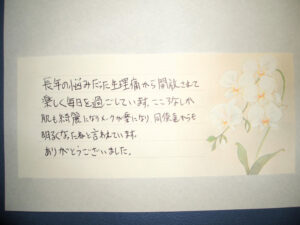 長年の悩みだった生理痛から開放されて
楽しく毎日を過ごしています。こころなしか
肌も綺麗になりメークが楽になり 同僚達からも
明るくなったねと言われています。
ありがとうございました。